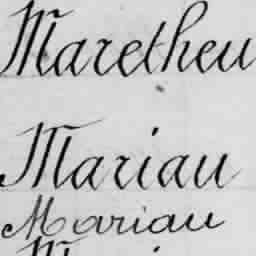 Maretheu
Mariau
Mariau